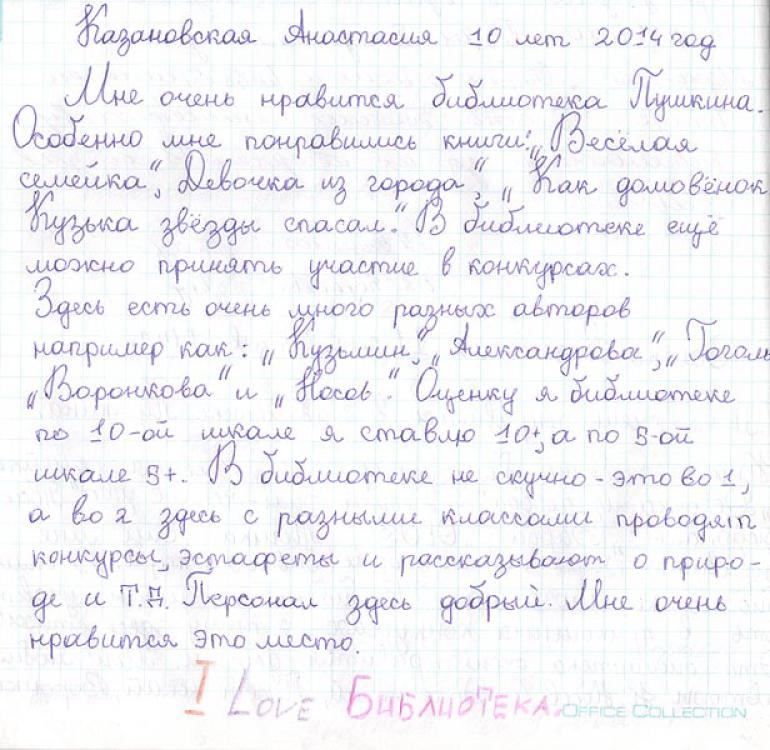 Казановская Анастасия 10 лет 2014 год
Мне очень нравится библиотека Пушкина.
Особенно мне понравились книги: „Весёлая
семейка“, „Девочка из города“, „Как домовёнок
Кузька звёзды спасал.“ В библиотеке ещё
можно принять участие в конкурсах.
Здесь есть очень много разных авторов
например как: „Кузьмин“, „Александрова“, „Гоголь
„Воронкова“ и „Носов“. Оценку я библиотеке
по 10-ой шкале я ставлю 10+, а по 5-ой
шкале 5+. В библиотеке не скучно - это во 1,
а во 2 здесь с разными классами проводят
конкурсы, эстафеты и рассказывают о приро-
де и т.д. Персонал здесь добрый. Мне очень
нравится это место.
I Love Библиотека.
OFFICE COLLECTION